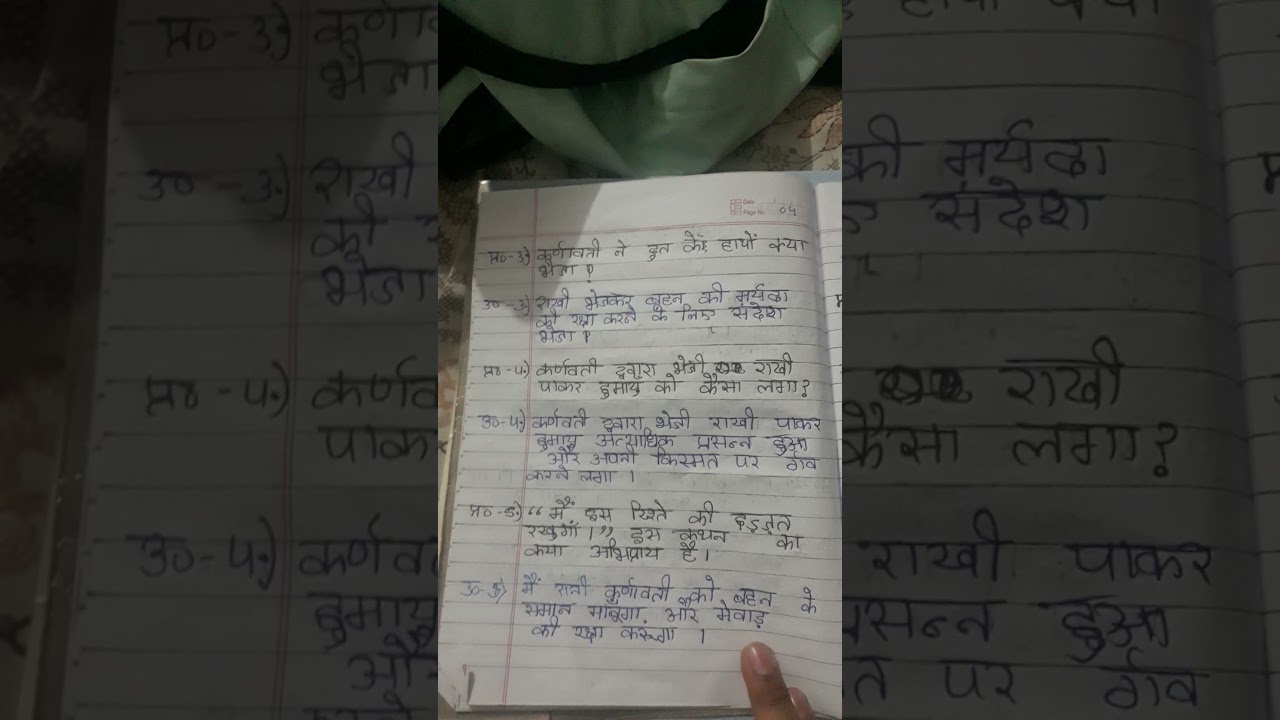 Date
Page No. 04
प्र०-3.) कर्णावती ने दुत के हाथों क्या
भेजा ?
उ०-3.) राखी भेजकर बहन की मर्यदा
की रक्षा करने के लिए संदेश
भेजा ।
प्र०-4.) कर्णवती द्वारा भेजी राखी
पाकर हुमायु को कैसा लगा?
उ०-4.) कर्णवती द्वारा भेजी राखी पाकर
हुमायु अत्याधिक प्रसन्न हुआ
और अपनी किस्मत पर र्गव
करने लगा ।
प्र०-5.) “मैं इस रिश्ते की इज़्ज़त
रखुगाँ।” इस कथन का
क्या अभिप्राय है ।
उ०-5) मैं रानी कर्णावती को बहन के
समान मानुगा और मेवाड़
की रक्षा करूगा ।